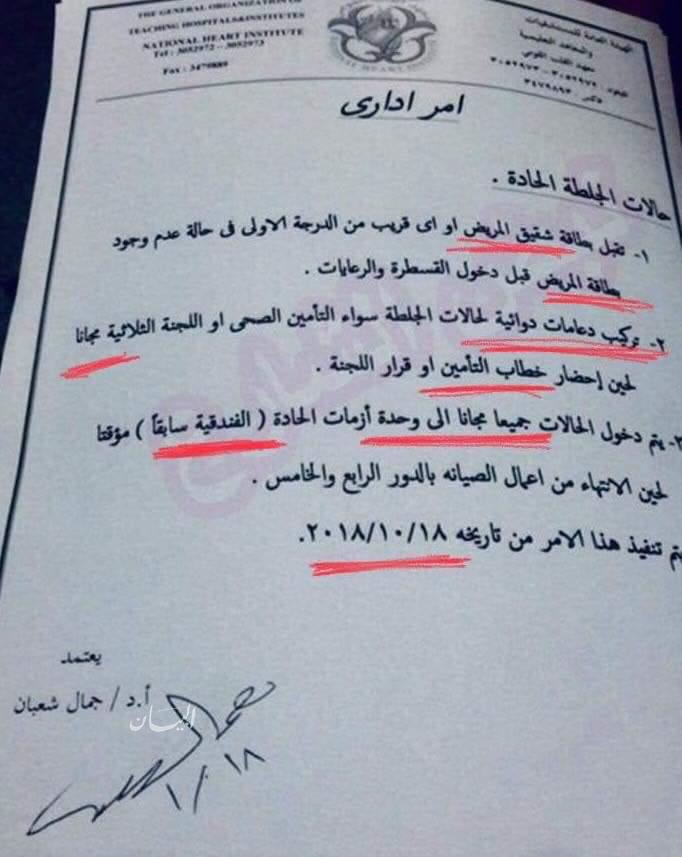 THE GENERAL ORGANIZATION OF
TEACHING HOSPITALS&INSTITUTES
NATIONAL HEART INSTITUTE
Tel : 3052972 – 3052973
Fax : 3479889
الهيئة العامة للمستشفيات
والمعاهد التعليمية
معهد القلب القومى
تليفون : ٣٠٥٢٩٧٢ – ٣٠٥٢٩٧٣
فاكس : ٣٤٧٩٨٩٣
NATIONAL HEART INSTITUTE
امر ادارى
حالات الجلطة الحادة .
١- تقبل بطاقة شقيق المريض او اى قريب من الدرجة الاولى فى حالة عدم وجود
بطاقة المريض قبل دخول القسطرة والرعايات .
٢- تركيب دعامات دوائية لحالات الجلطة سواء التأمين الصحى او اللجنة الثلاثية مجانا
لحين إحضار خطاب التأمين او قرار اللجنة .
٣- يتم دخول الحالات جميعا مجانا الى وحدة أزمات الحادة ( الفندقية سابقاً ) مؤقتا
لحين الانتهاء من اعمال الصيانه بالدور الرابع والخامس .
يتم تنفيذ هذا الامر من تاريخه ٢٠١٨/١٠/١٨.
يعتمد
أ.د / جمال شعبان
البيان
١٠/١٨